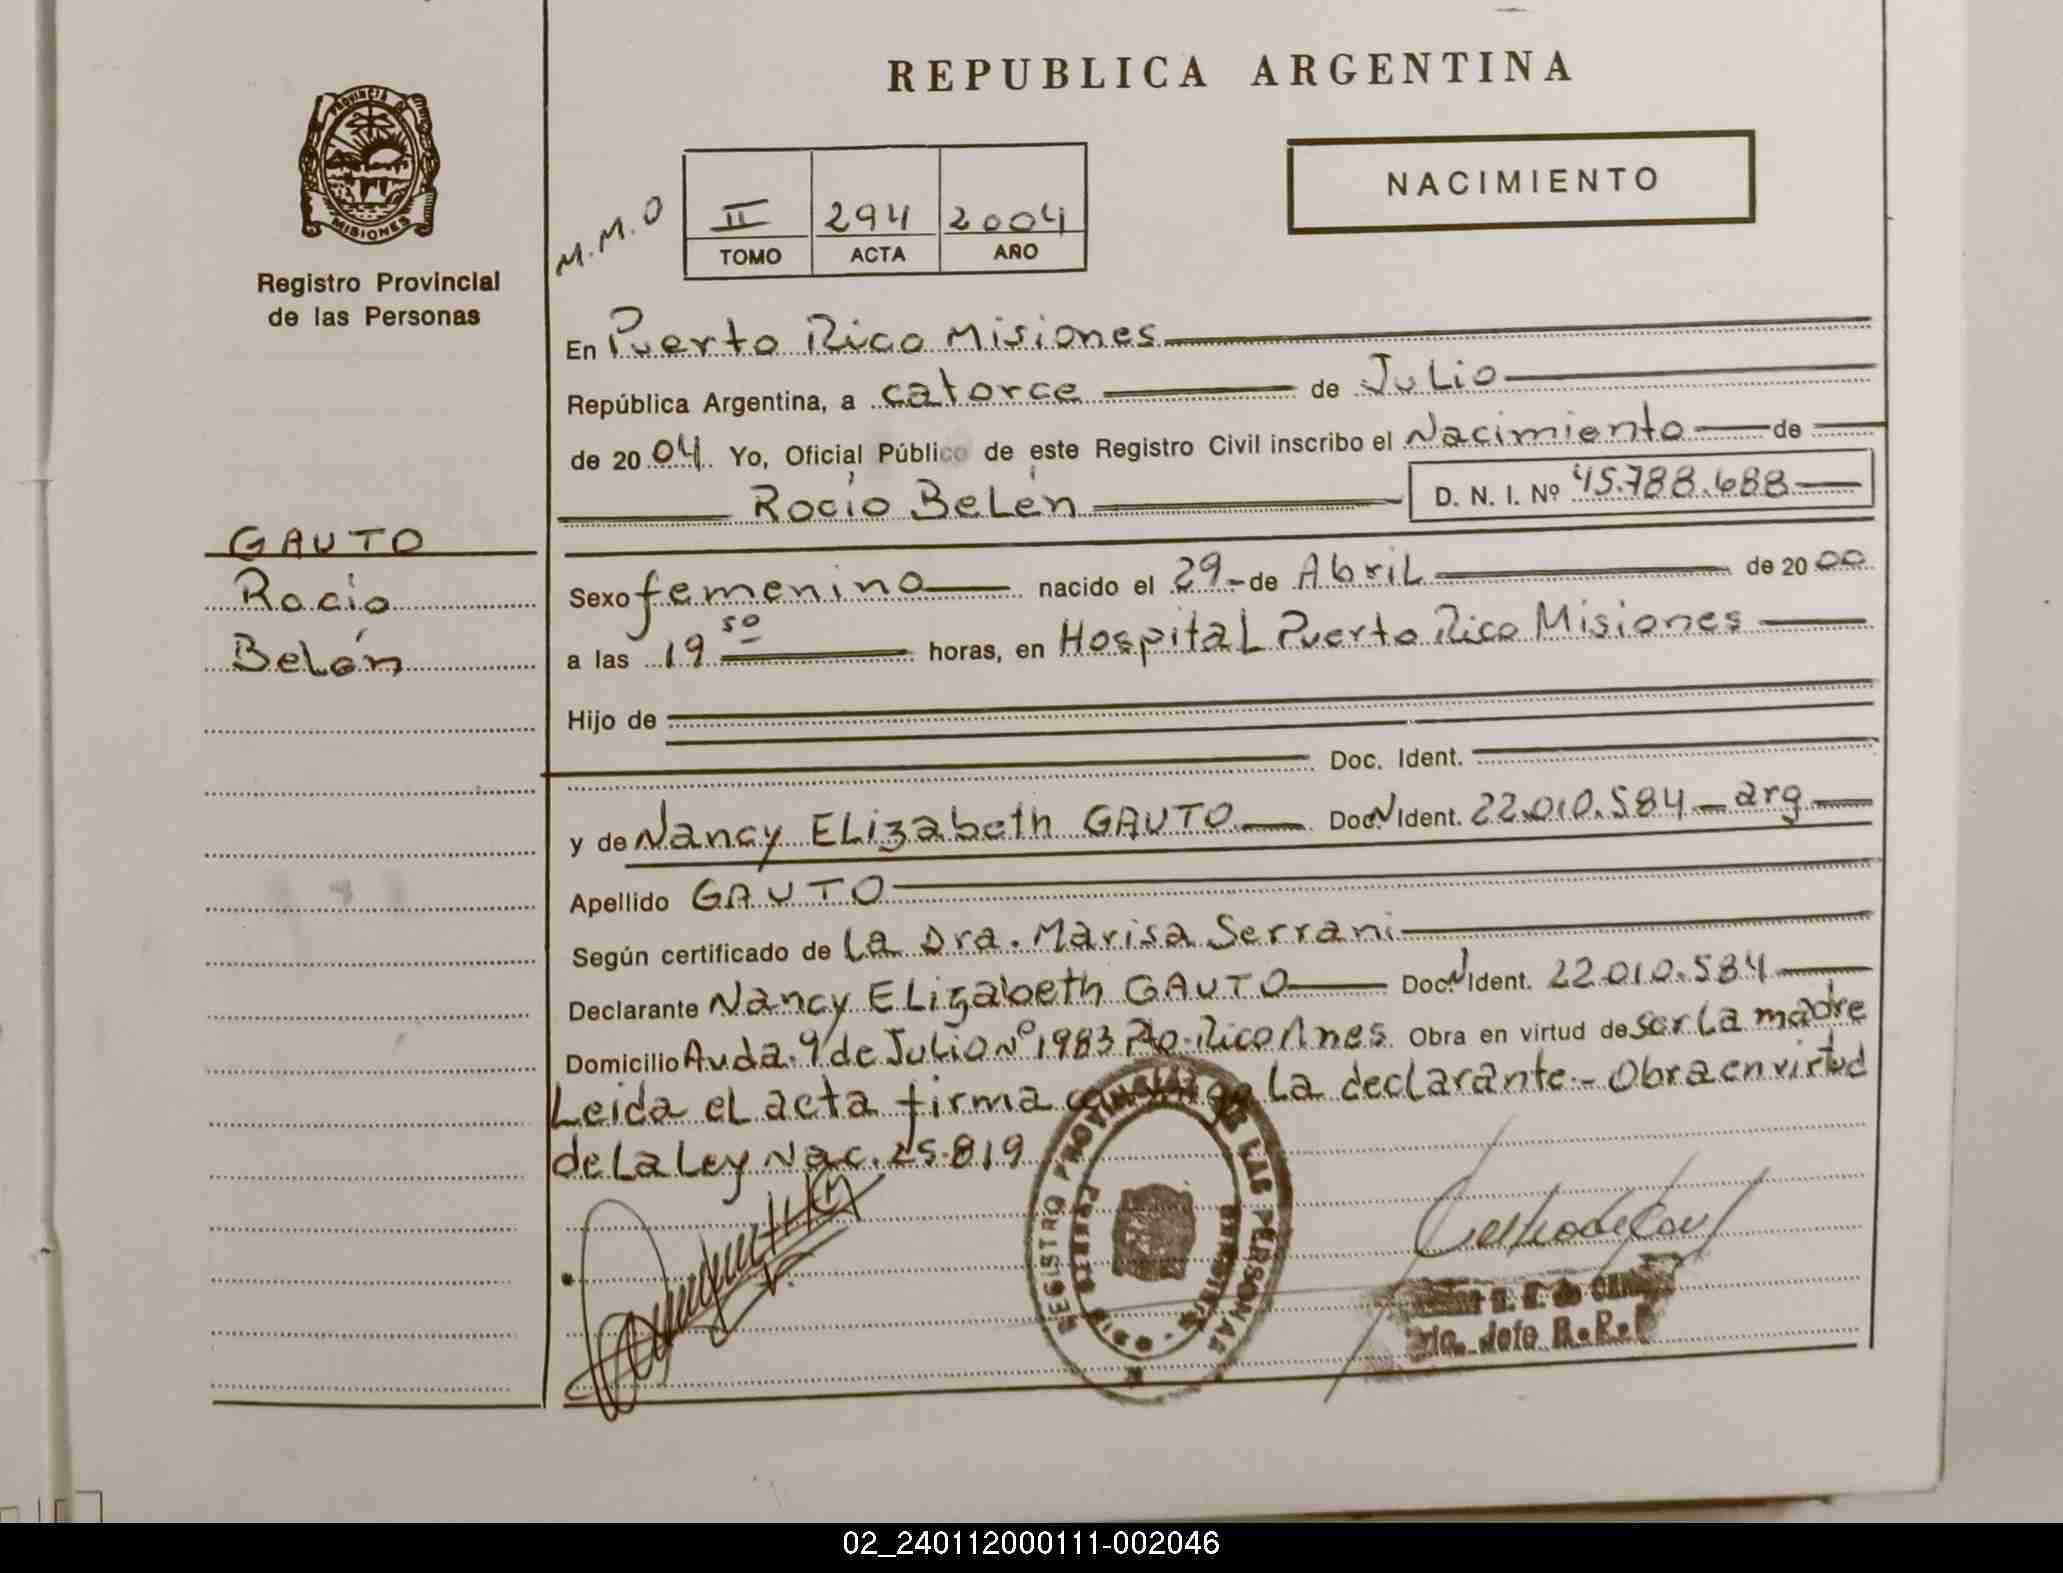 REPUBLICA ARGENTINA
PROVINCIA DE
MISIONES
Registro Provincial
de las Personas
NACIMIENTO
M.M.O
II 294 2004
TOMO ACTA AÑO
En Puerto Rico Misiones
República Argentina, a catorce de Julio
de 2004. Yo, Oficial Público de este Registro Civil inscribo el Nacimiento de
Rocío Belén D. N. I. Nº 45.788.688
GAUTO
Rocío
Belén
Sexo femenino nacido el 29 de Abril de 2000
a las 19 50 horas, en Hospital Puerto Rico Misiones
Hijo de
Doc. Ident.
y de Nancy ELizabeth GAUTO Doc. N Ident. 22.010.584 - arg
Apellido GAUTO
Según certificado de La Dra. Marisa Serrani
Declarante Nancy ELizabeth GAUTO Doc. N Ident. 22.010.584
Domicilio Avda. 9 de Julio Nº 1983 Pto. Rico Mnes. Obra en virtud de ser La madre
Leida eL acta firma La declarante.- Obra en virtud
de La Ley Nac. 25.819
REGISTRO PROVINCIAL DE LAS PERSONAS
PUERTO RICO
MISIONES
Jefe R.P.P
02_240112000111-002046